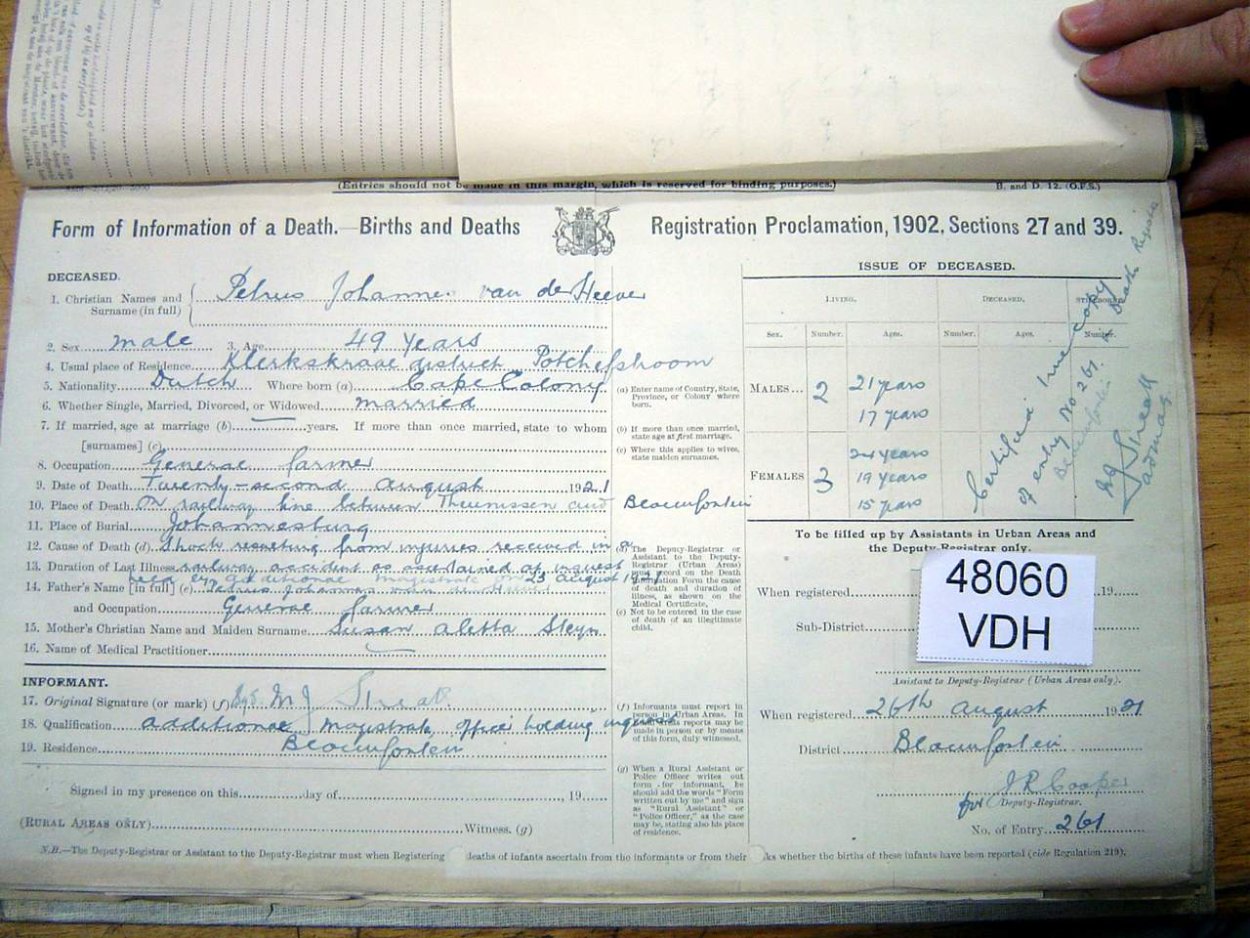 (Entries should not be made in this margin, which is reserved for binding purposes.)
B. and D. 12. (O.F.S.)
Form of Information of a Death.—Births and Deaths Registration Proclamation, 1902, Sections 27 and 39.
DECEASED.
1. Christian Names and Surname (in full) Petrus Johannes van der Heever
2. Sex male 3. Age 49 years
4. Usual place of Residence Klerkskraal district Potchefstroom
5. Nationality Dutch Where born (a) Cape Colony
6. Whether Single, Married, Divorced, or Widowed married
7. If married, age at marriage (b) years. If more than once married, state to whom
[surnames] (c)
8. Occupation General farmer
9. Date of Death Twenty-second august 1921
10. Place of Death On railway line between Theunissen and Bloemfontein
11. Place of Burial Johannesburg
12. Cause of Death (d) Shock resulting from injuries received in a
13. Duration of Last Illness railway accident as ascertained at inquest
held by additional magistrate on 23 august 1921
14. Father's Name [in full] (e) Petrus Johannes van der Heever
and Occupation General farmer
15. Mother's Christian Name and Maiden Surname Susan Aletta Steyn
16. Name of Medical Practitioner
INFORMANT.
17. Original Signature (or mark) (f) Sgd. M J
18. Qualification additional magistrate officer holding inquest
19. Residence Bloemfontein
Signed in my presence on this day of , 19
(RURAL AREAS ONLY) Witness. (g)
(a) Enter name of Country, State, Province, or Colony where born.
(b) If more than once married, state age at first marriage.
(c) Where this applies to wives, state maiden surnames.
(d) The Deputy-Registrar or
Assistant to the Deputy-
Registrar (Urban Areas)
must record on the Death
Information Form the cause
of death and duration of
illness, as shown on the
Medical Certificate.
(e) Not to be entered in the case
of death of an illegitimate
child.
(f) Informants must report in
person in Urban Areas. In
reports may be
made in person or by means
of this form, duly witnessed.
(g) When a Rural Assistant or
Police Officer writes out
form for informant, he
should add the words "Form
written out by me" and sign
as "Rural Assistant" or
"Police Officer," as the case
may be, stating also his place
of residence.
ISSUE OF DECEASED.
LIVING. DECEASED.
Sex. Number. Ages. Number. Ages. Number.
MALES 2 21 years
17 years
FEMALES 3 24 years
19 years
15 years
Certified true copy
of entry No 261 Death Register
Bloemfontein
To be filled up by Assistants in Urban Areas and
the Deputy-Registrar only.
When registered 19
Sub-District
48060
VDH
Assistant to Deputy-Registrar (Urban Areas only).
When registered 26th august 1921
District Bloemfontein
J R Cooper
for Deputy-Registrar.
No. of Entry 261
N.B.—The Deputy-Registrar or Assistant to the Deputy-Registrar must when Registering deaths of infants ascertain from the informants or from their whether the births of these infants have been reported (vide Regulation 219).